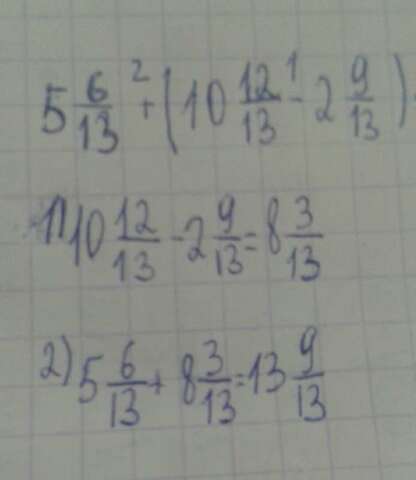 5 6/13 +² (10 12/13 -¹ 2 9/13)
1) 10 12/13 - 2 9/13 = 8 3/13
2) 5 6/13 + 8 3/13 = 13 9/13